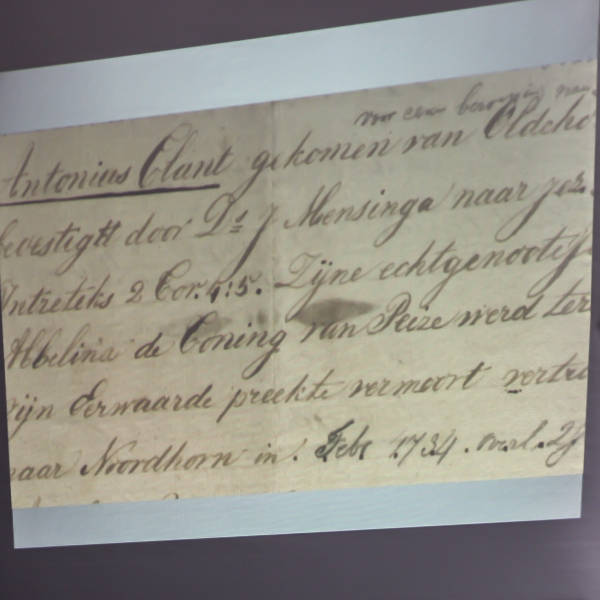 voor eene beroeping naar
Antonius Clant gekomen van Oldeho
bevestigtt door Ds J Mensinga naar Jez.
Intreteks 2 Cor. 4:5. Zijne echtgenoote
Abbelina de Coning van Peize werd ter
zijn Eerwaarde preekte vermoort vertro
naar Noordhorn in Febr 1734. overl. 2